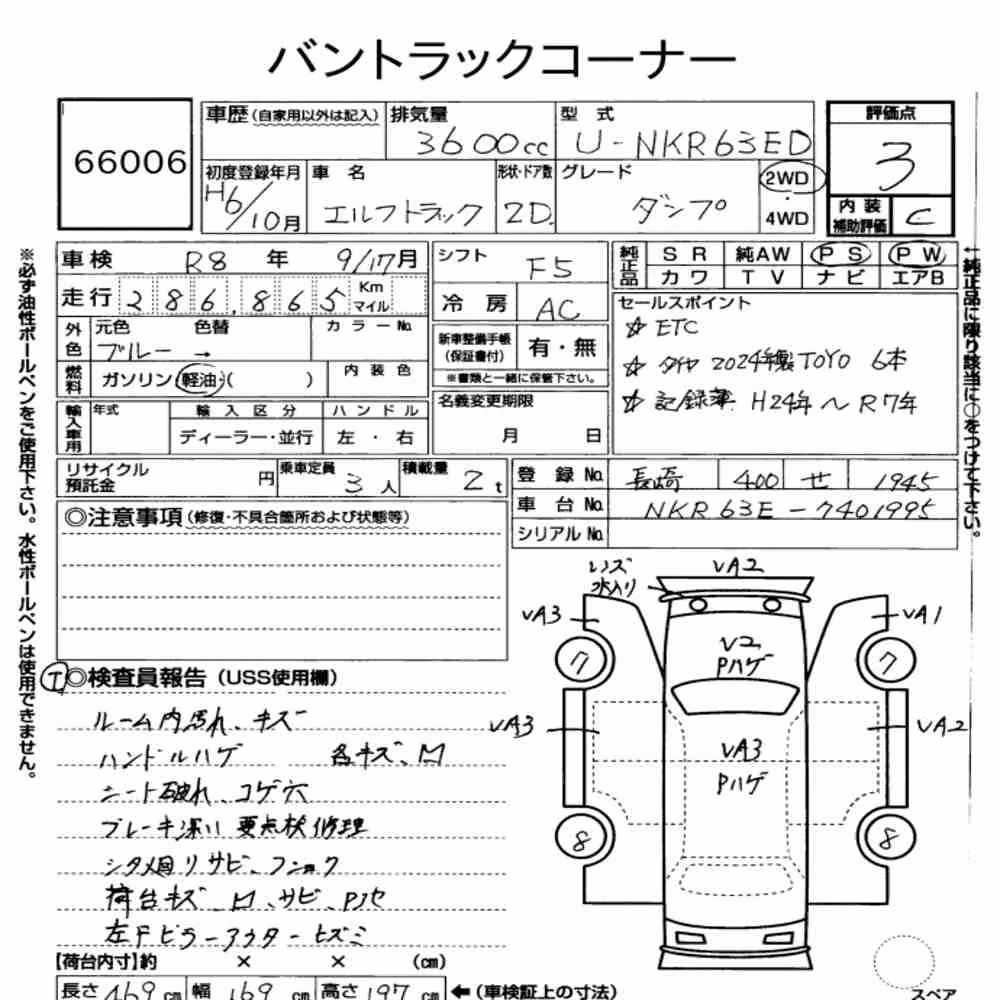 バントラックコーナー
66006
車歴(自家用以外は記入) 排気量 3600cc 型式 U-NKR63ED
評価点 3
初度登録年月 H6/10月 車名 エルフトラック 形状・ドア数 2D. グレード ダンプ 2WD・4WD
内装補助評価 C
車検 R8年 9/17月
走行 286,865 Km マイル
外色 元色 ブルー → 色替 カラーNo.
燃料 ガソリン・軽油・( ) 内装色
輸入車用 年式 輸入区分 ディーラー・並行 ハンドル 左・右
シフト F5
冷房 AC
新車整備手帳(保証書付) 有・無
※書類と一緒に保管下さい。
名義変更期限 月 日
純正品 SR 純AW PS PW
カワ TV ナビ エアB
セールスポイント
☆ ETC
☆ タイヤ 2024年製TOYO 6本
☆ 記録簿 H24年~R7年
リサイクル預託金 円 乗車定員 3人 積載量 2t
登録No. 長崎 400 せ 1945
車台No. NKR63E-7401995
シリアルNo.
◎注意事項(修復・不具合箇所および状態等)
I◎検査員報告(USS使用欄)
ルーム内汚れ、キズ
ハンドルハゲ 各キズ、凹
シート破れ、コゲ穴
ブレーキ深い 要点検修理
シタ廻りサビ、フショク
荷台キズ、凹、サビ、Pハゲ
左Fピラーアウターヒズミ
【荷台内寸】約 × × (cm)
長さ 469cm 幅 169cm 高さ 197cm ←(車検証上の寸法)
レンズ水入り
VA2
VA3
VA1
V2
Pハゲ
7
7
VA3
VA2
VA3
Pハゲ
8
8
スペア
※必ず油性ボールペンをご使用下さい。水性ボールペンは使用できません。
←純正品に限り該当に○をつけて下さい。